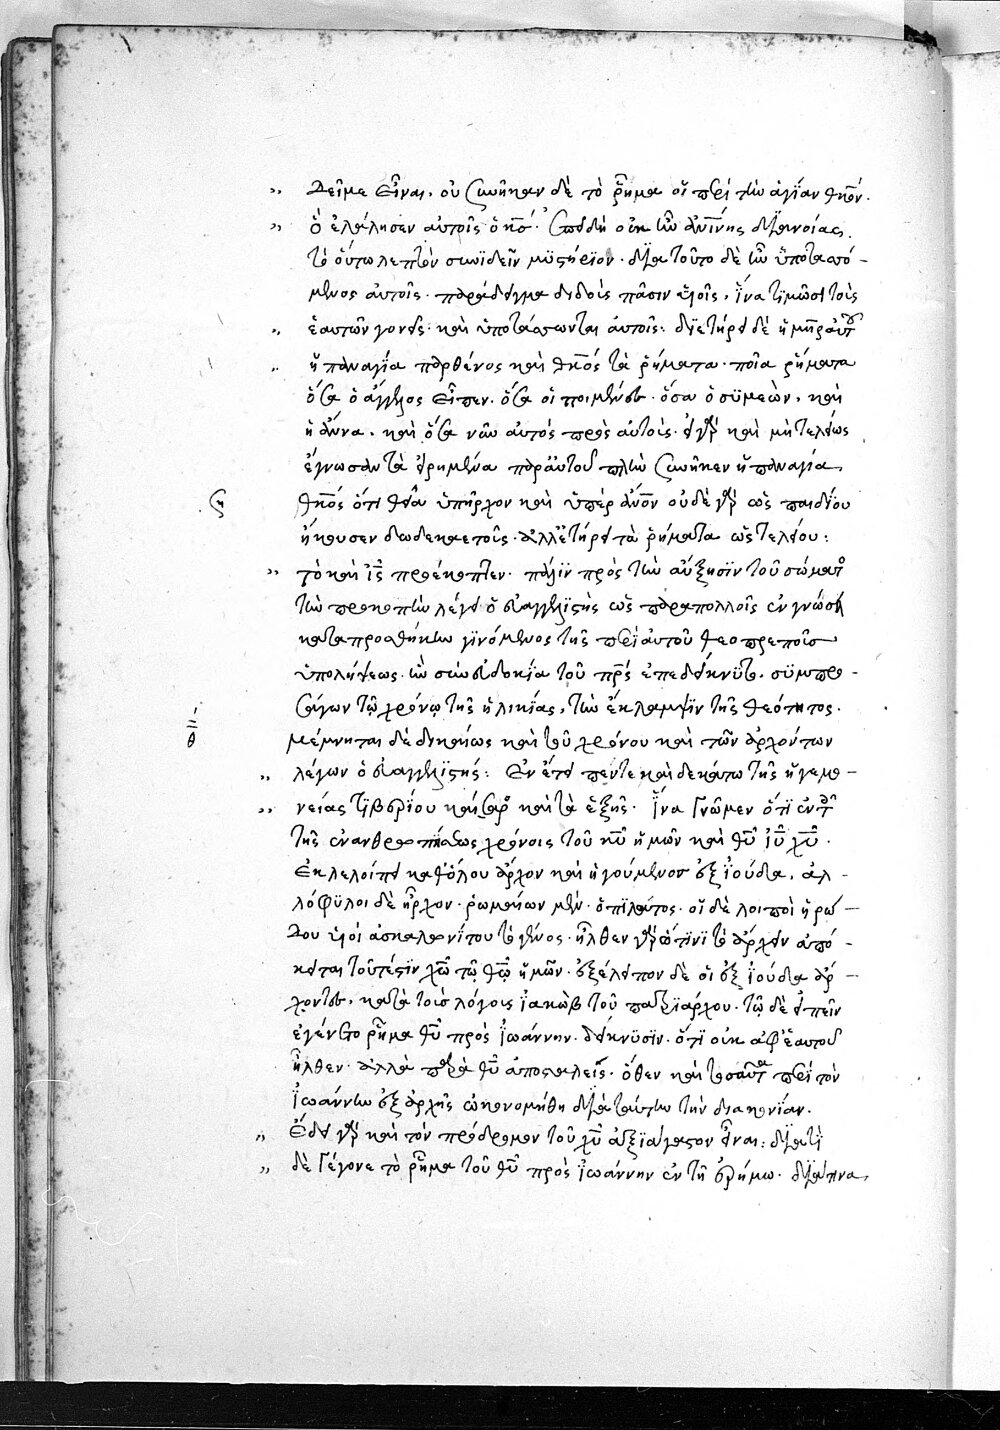 δεῖ με εἶναι. οὐ συνῆκαν δὲ τὸ ῥῆμα οἱ περὶ τὴν ἁγίαν θκον.
ὁ ἐλάλησεν αὐτοῖς ὁ κς. ἐπειδὴ οὐκ ἦν ἀνίνης διανοίας
τὸ οὕτω λεπτὸν συνϊδεῖν μϋστήρϊον. διὰ τοῦτο δὲ ἦν ὑποτασσό-
μενος αὐτοῖς. παράδειγμα διδοὺς πᾶσιν υἱοῖς, ἵνα τϊμῶσι τοὺς
ἑαυτῶν γονεῖς. καὶ ὑποτάσσωνται αὐτοῖς: διετήρει δὲ ἡ μηρ αὐτοῦ
ἡ παναγία παρθένος καὶ θκος τὰ ῥήματα. ποῖα ῥήματα
ὅσα ὁ ἄγγελος εἶπεν. ὅσα οἱ ποιμένες. ὅσα ὁ σϋμεὼν. καὶ
ἡ ἄννα. καὶ ὅσα νῦν αὐτὸς πρὸς αὐτοὺς. εἰ γὰρ καὶ μὴ τελείως
ἔγνωσαν τὰ εἰρημένα παρ αὐτοῦ πλὴν συνῆκεν ἡ παναγία
θκος ὅτι θεῖα ὑπῆρχον καὶ ὑπὲρ ἀνον οὐδὲ γὰρ ὡς παιδίου
ἤκουσεν δωδεκαετοῦς. ἀλλ ἐτήρει τὰ ῥήματα ὡς τελείου:
τὸ καὶ ις προέκοπτεν. πάλϊν πρὸς τὴν αὔξησϊν τοῦ σώματος
τὴν προκοπὴν λέγει ὁ εὐαγγελϊστὴς ὡς παρα πολλοῖς ἐν γνώσει
κατα προσθήκην γϊνόμενος τῆς περὶ αὐτοῦ θεοπρεποῦς
ὑπολήψεως. ἣν συν εὐδοκία τοῦ πρς ἐπεδείκνϋτο. σϋμπρο-
άγων τῷ χρόνῳ τῆς ἡλικίας, τὴν ἔκλαμψϊν τῆς θεότητος.
μέμνηται δὲ δικαίως καὶ τοῦ χρόνου καὶ τῶν ἀρχόντων
λέγων ὁ εὐαγγελϊστής: Εν ἔτει πεντεκαιδεκάτω τῆς ἡγεμο-
νείας τϊβερίου καίσαρος καὶ τὰ ἑξῆς. ἵνα γνῶμεν ὅτϊ ἐν τοῖς
τῆς ἐνανθρωπήσεως χρόνοις τοῦ κυ ἡμῶν καὶ θυ ιυ χυ.
ἐκλελοίπει καθόλου ἄρχον καὶ ἡγούμενος ἐξ ἰούδα. ἀλ-
λόφϋλοι δὲ ἦρχον. ῥωμαίων μὲν. ὁ πϊλάτος. οἱ δὲ λοιποὶ ἡρώ-
δου υἱοὶ ἀσκαλωνίτου τὸ γένος. ἦλθεν γὰρ ᾧτϊνϊ τὸ ἄρχειν ἀπό-
κειται τοῦτέστϊν χω τῷ θω ἡμῶν. ἐξέλειπον δὲ οἱ ἐξ ἰούδα ἄρ-
χοντες. κατὰ τοὺς λόγους ἰακὼβ τοῦ πατρϊάρχου. τῷ δὲ εἰπεῖν
ἐγένετο ῥῆμα θυ πρὸς ἰωάννην. δείκνϋσϊν. ὅτϊ οὐκ ἀφ ἑαυτοῦ
ἦλθεν. ἀλλὰ παρὰ θυ ἀποσταλεὶς. ὅθεν καὶ τοσαῦτα περὶ τὸν
ἰωάννην ἐξ ἀρχῆς ὠκονομήθη διὰ ταύτην τὴν διακονίαν.
Εδει γὰρ καὶ τὸν πρόδρομον τοῦ χυ ἀξϊάγαστον εἶναι: διατὶ
δὲ γέγονε τὸ ῥῆμα τοῦ θυ πρὸς ἰωάννην ἐν τῇ ἐρήμω. διά τινα